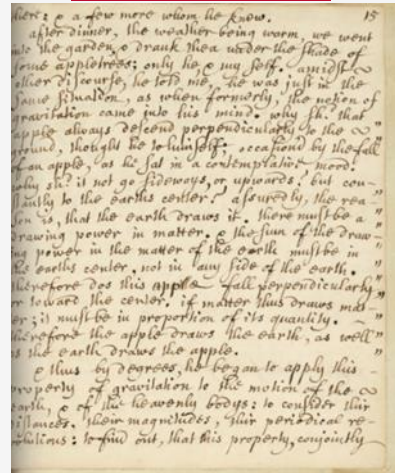 hers: & a few more whom he knew. 15
after dinner, the weather being warm, we went
into the garden, & drank thea under the shade of
some appletrees; only he & my self. amidst
other discourse, he told me, he was just in the
same situation, as when formerly, the notion of
gravitation came into his mind. why sh.d that
apple always descend perpendicularly to the
ground, thought he to himself; occasion'd by the fall
of an apple, as he sat in a contemplative mood.
why sh.d it not go sideways, or upwards? but con-
stantly to the earths center? assuredly, the rea-
son is, that the earth draws it. there must be a
drawing power in matter. & the sum of the draw-
ing power in the matter of the earth must be in
the earths center, not in any side of the earth.
therefore dos this apple fall perpendicularly
or toward the center. if matter thus draws mat-
ter; it must be in proportion of its quantity.
therefore the apple draws the earth, as well
as the earth draws the apple.
& thus by degrees, he began to apply this
property of gravitation to the motion of the
earth, & of the heavenly bodys: to consider thir
distances, their magnitudes, thir periodical re-
volutions: to find out, that this property, conjointly